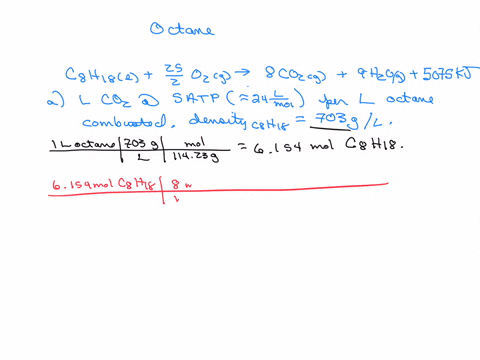 Octane
C8H18(l) + 25/2 O2(g) → 8CO2(g) + 9H2O(g) + 5075 KJ
a) L CO2 @ SATP (≈24 L/mol) per L octane
combusted. density C8H18 = 703 g/L.
1 L octane | 703 g | mol = 6.154 mol C8H18.
L | 114.23 g
6.154 mol C8H18 | 8 m
1